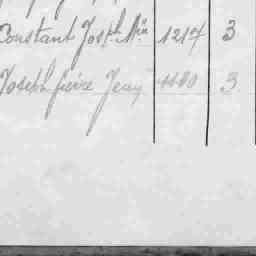 Constant Joseph Min 1217 3
Joseph pierre Jean 1180 3